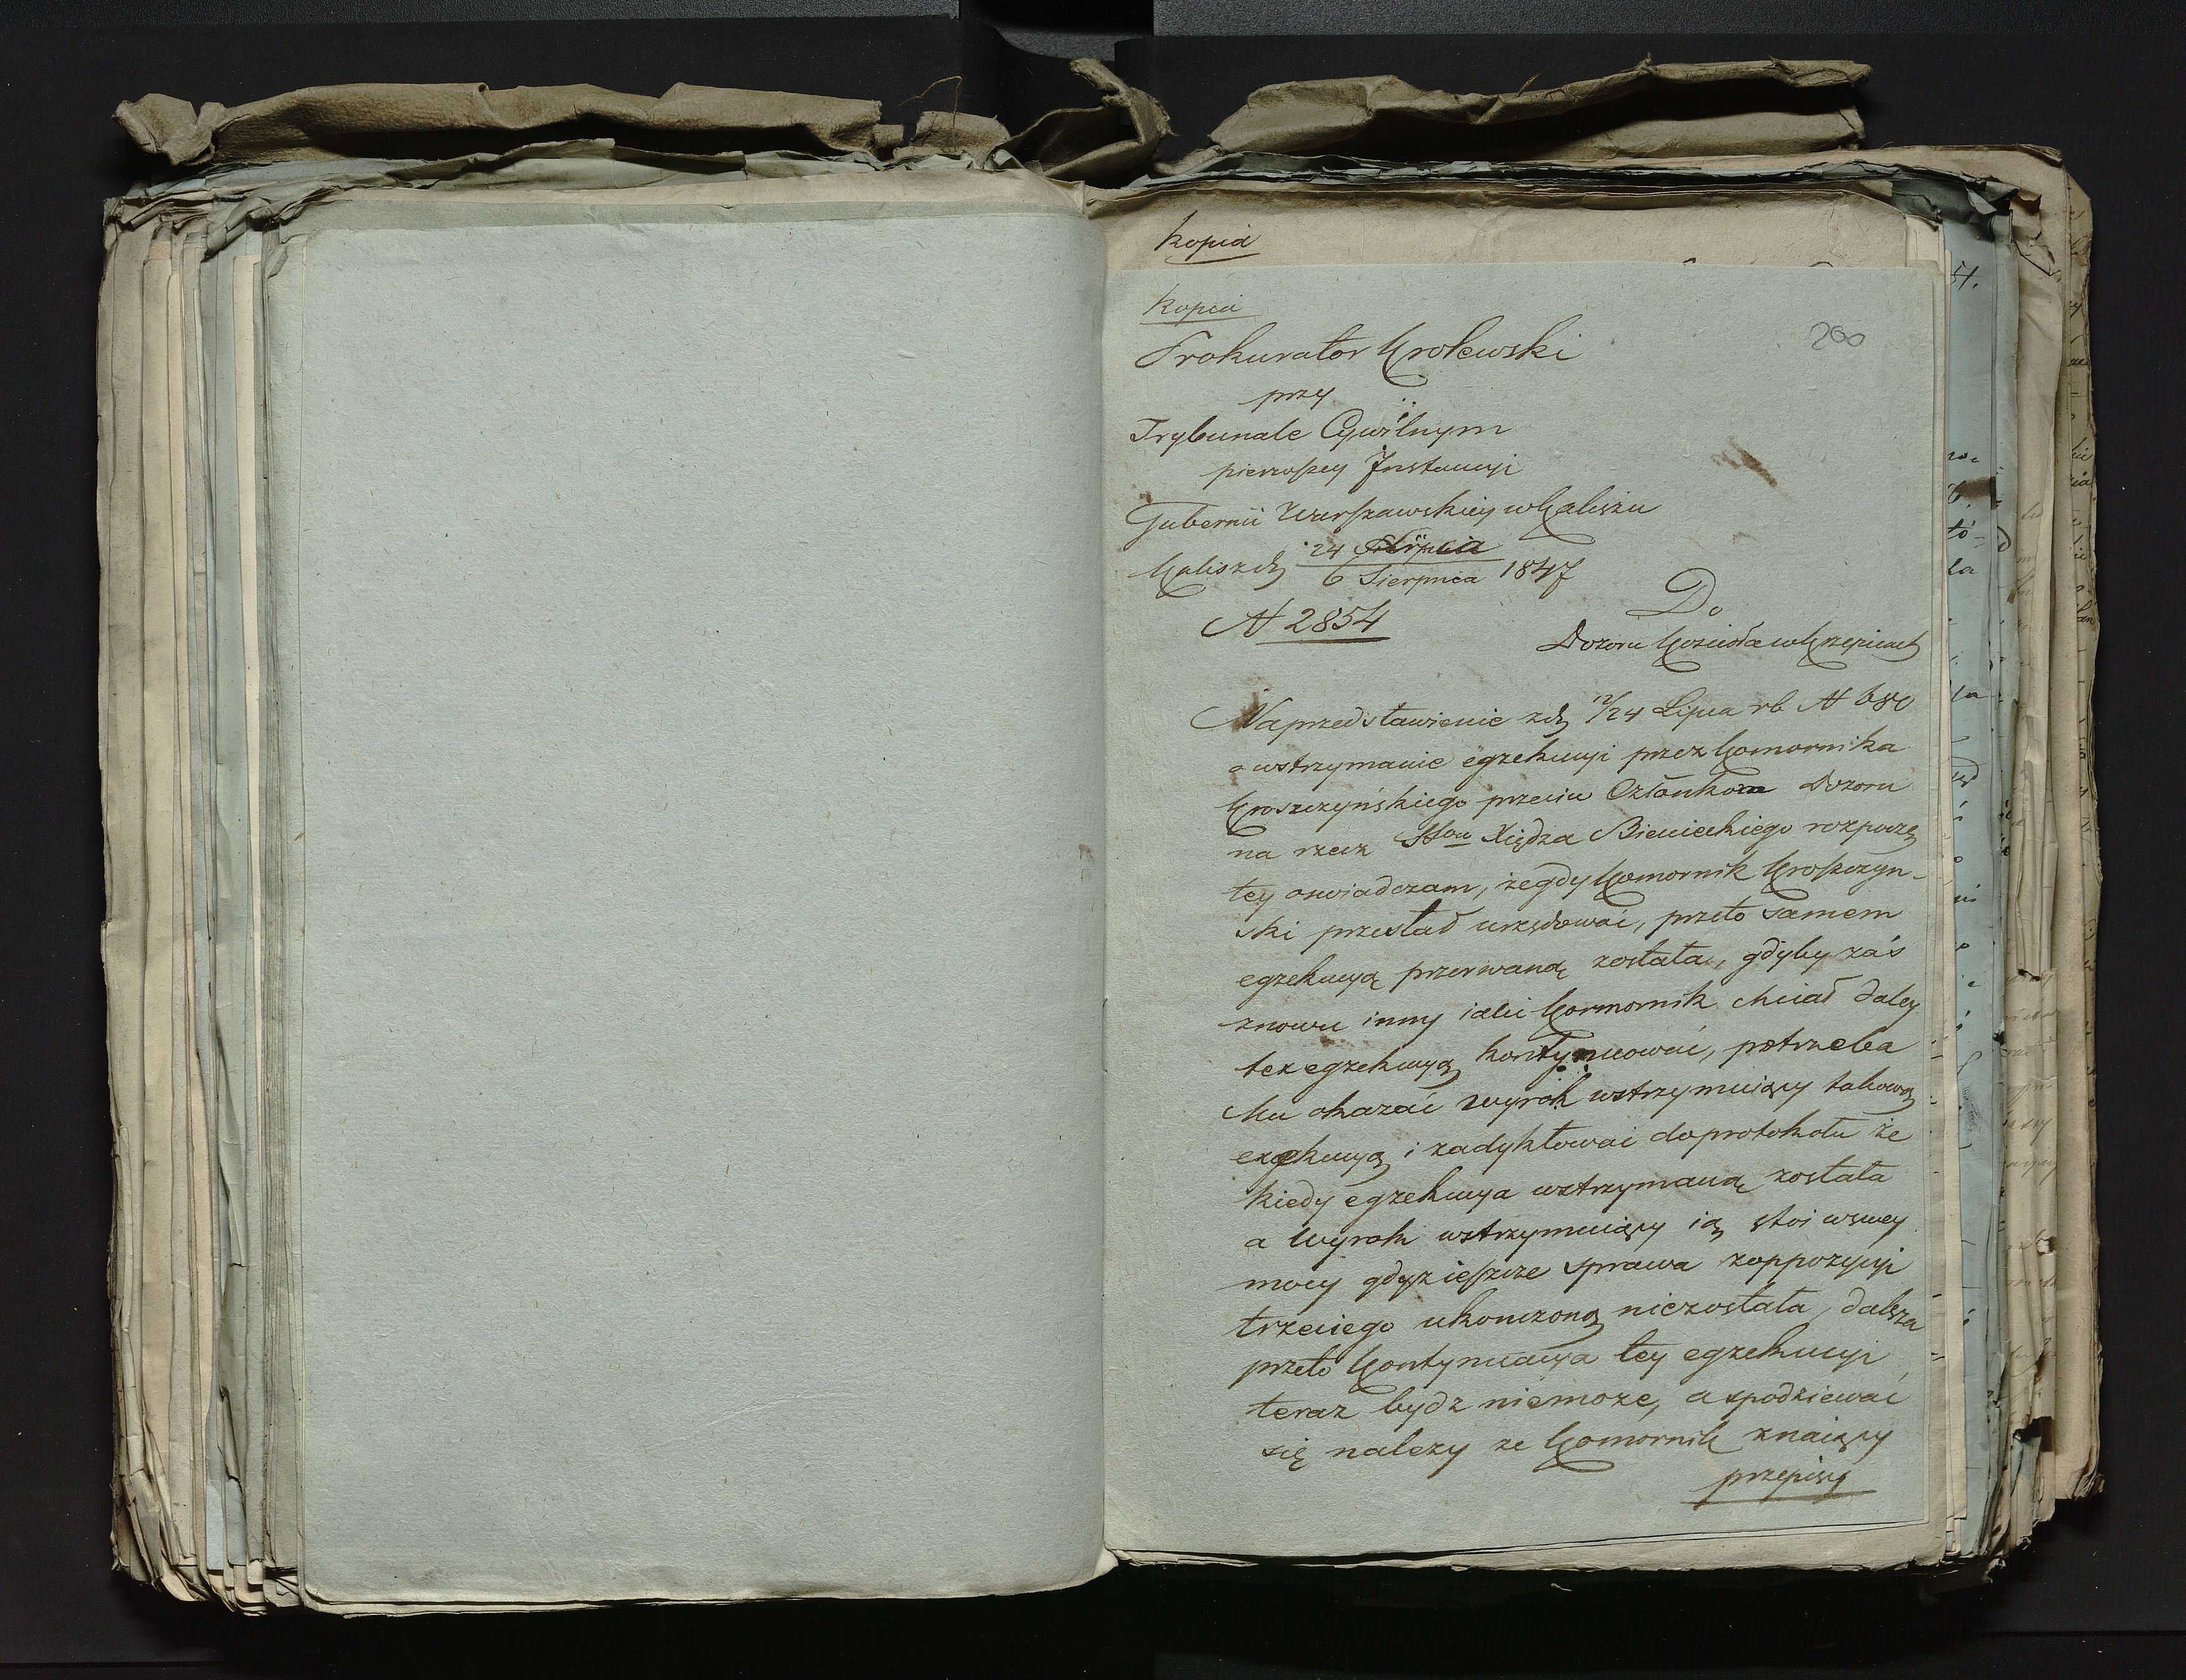 kopia
kopia
200
Prokurator Krolewski
przy
Trybunale Cywilnym
pierwszey Instancyi
Gubernii Warszawskiey w Kaliszu
Kalisz d. 24 Lipca
6 Sierpnia 1847
N 2854
Do
Dozoru Kościoła w Krzepicach
Na przedstawienie z d. 12/24 Lipca r b N 680
o wstrzymanie egzekucyi przez Komornika
Kroszczyńskiego przeciw Członkom Dozoru
na rzecz Xiędza Bienieckiego rozpoczę
tey oswiadczam, że gdy Komornik Kroszczyn-
ski przestał urzędować, przeto samem
egzekucyą przerwaną została, gdyby zaś
znowu inny iaki Kormornik chciał daley
tez egzekucyą kontynuować, potrzeba
Mu okazać wyrok wstrzymuiący takową
exekucyą i zadyktować do protokołu że
kiedy egzekucya wstrzymaną została
a Wyrok wstrzymuiący ią stoi w swey
mocy gdyz ieszcze sprawa z oppozycyi
trzeciego ukonczoną niezostała, dalsza
przeto Kontynuacya tey egzekucyi
teraz bydz niemoze, a spodziewać
się nalezy ze Komornik znaiący
przepisy
51.